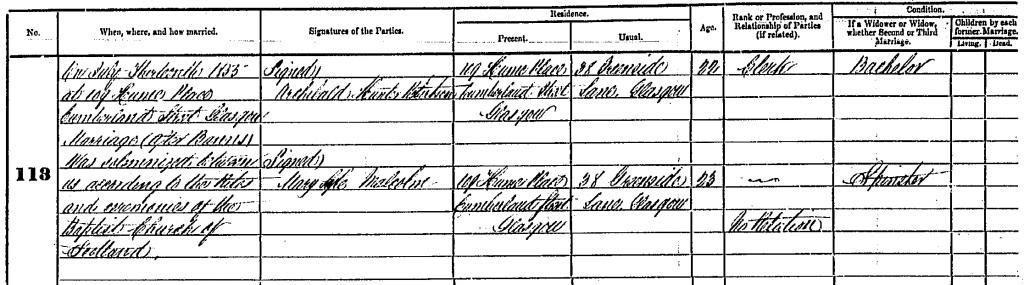 No.
When, where, and how married.
Signatures of the Parties.
Residence.
Present.
Usual.
Age.
Rank or Profession, and
Relationship of Parties
(if related).
Condition.
If a Widower or Widow,
whether Second or Third
Marriage.
Children by each
former Marriage.
Living.
Dead.
113
On July Thirteenth 1855
at 109 Hume Place
Cumberland Street Glasgow
Marriage (after Banns)
Was solemnized between
us according to the Rites
and ceremonies of the
Baptist Church of
Scotland.
Signed)
Archibald Hunter Robertson
109 Hume Place
Cumberland Street
Glasgow
38 Greenside
Lane, Glasgow
22
Clerk
Bachelor
Signed)
Mary Malcolm
109 Hume Place
Cumberland Street
Glasgow
38 Greenside
Lane, Glasgow
23
No Relation
Spinster